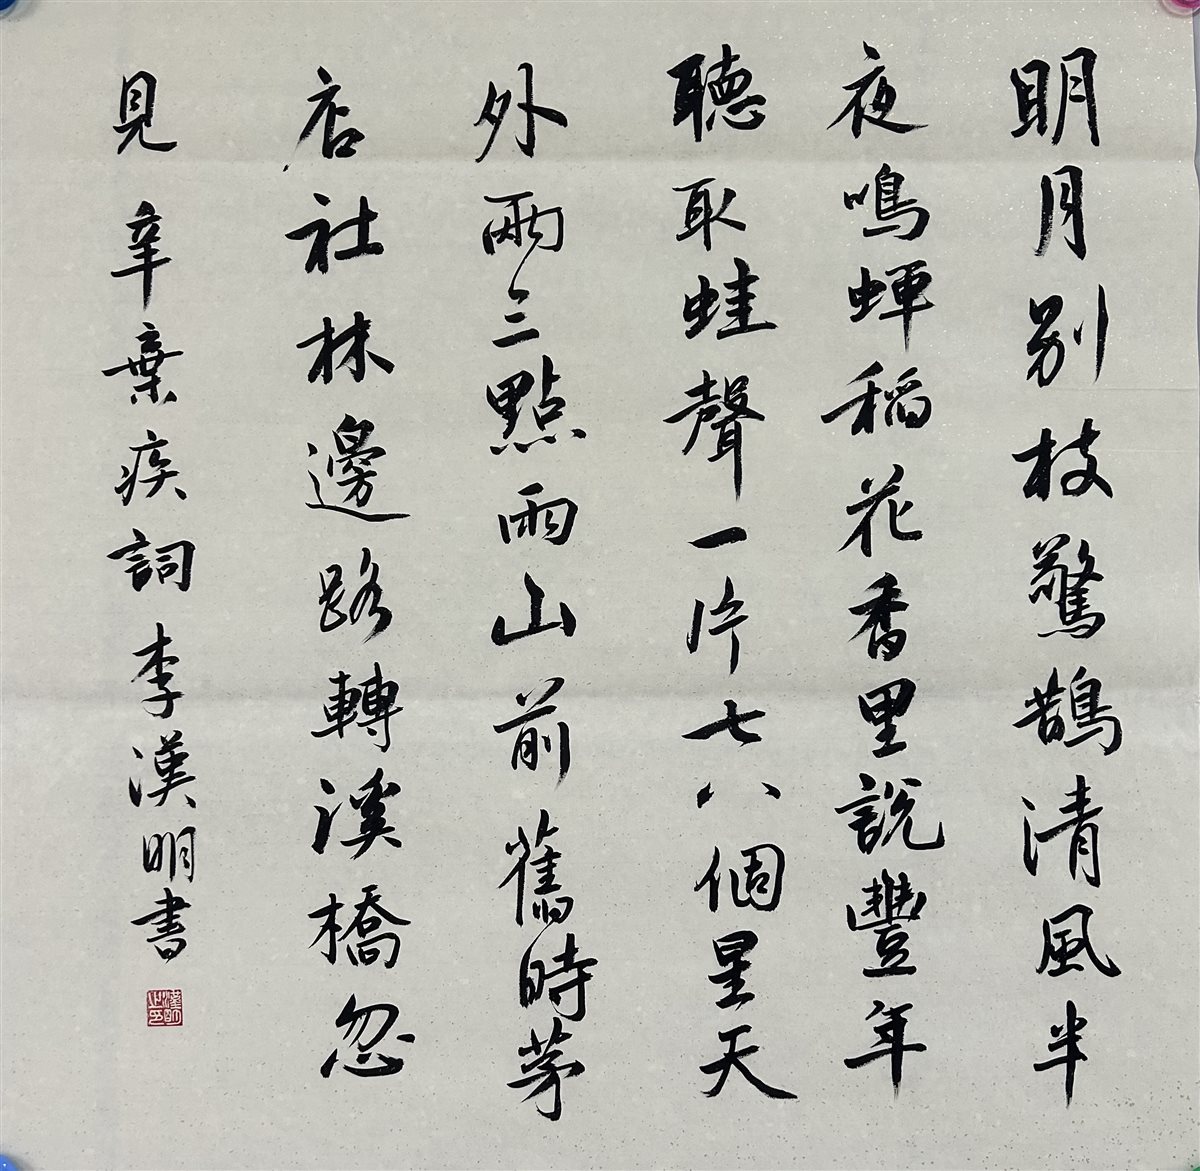 明月别枝驚鵲清風半
夜鳴蟬稻花香里説豐年
聽取蛙聲一片七八個星天
外兩三點雨山前舊時茅
店社林邊路轉溪橋忽
見辛棄疾詞李漢明書
漢明之印